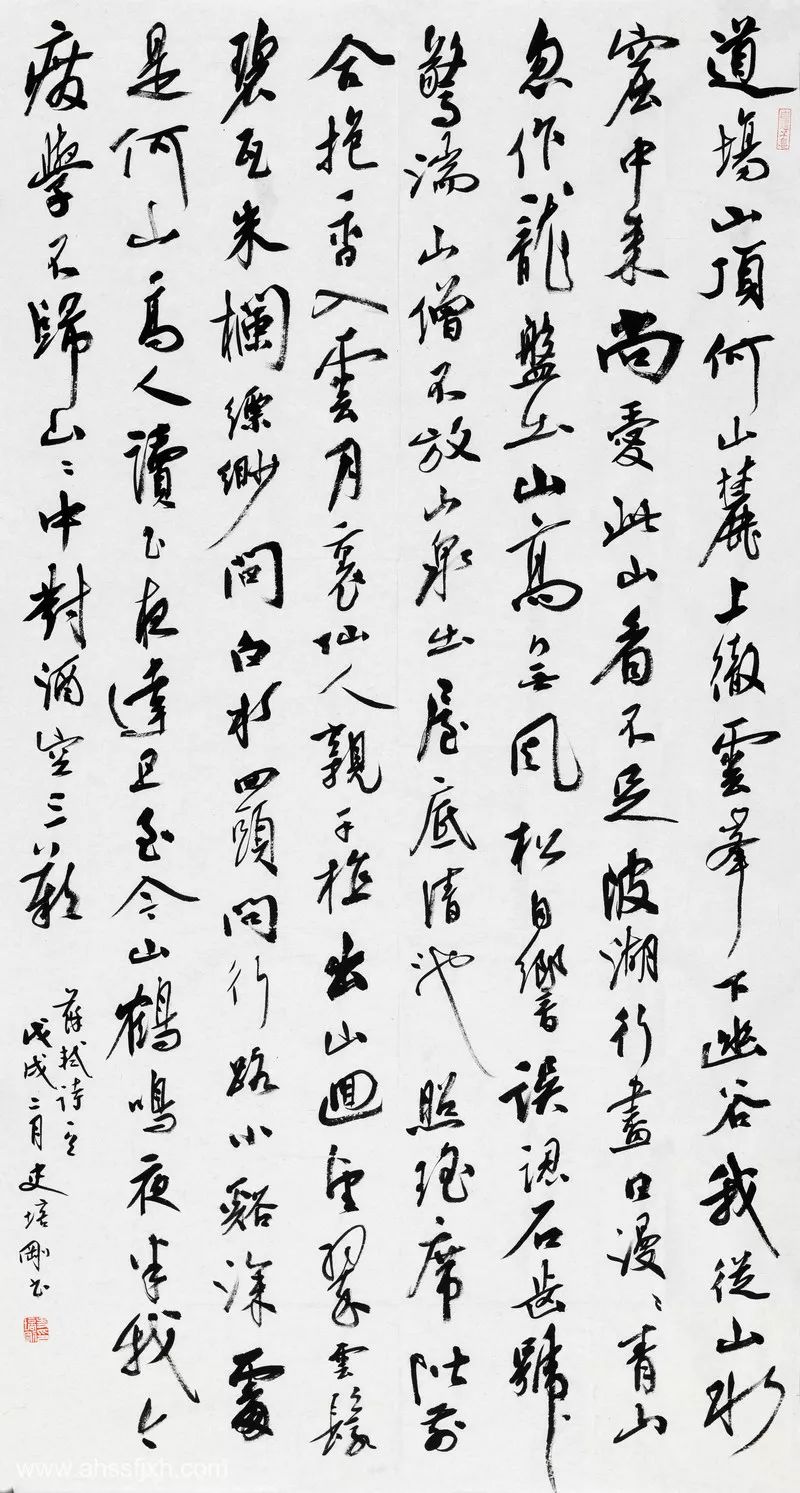 道場山頂何山麓上徹雲峯下幽谷我從山水
窟中来尚愛此山看不足陂湖行盡白漫〻青山
忽作龍盤出山高無風松自響誤認石齒號
驚湍山僧不放山泉出屋底清池照瑤席階前
合抱香入雲月裏仙人親手植出山迴望翠雲鬟
碧瓦朱欄縹緲間白水田頭問行路小谿深處
是何山高人讀書夜達旦至今山鶴鳴夜半我今
廢學不歸山〻中對酒空三歎
蘇軾詩
戊戌二月史培剛書
www.ahssfjxh.com